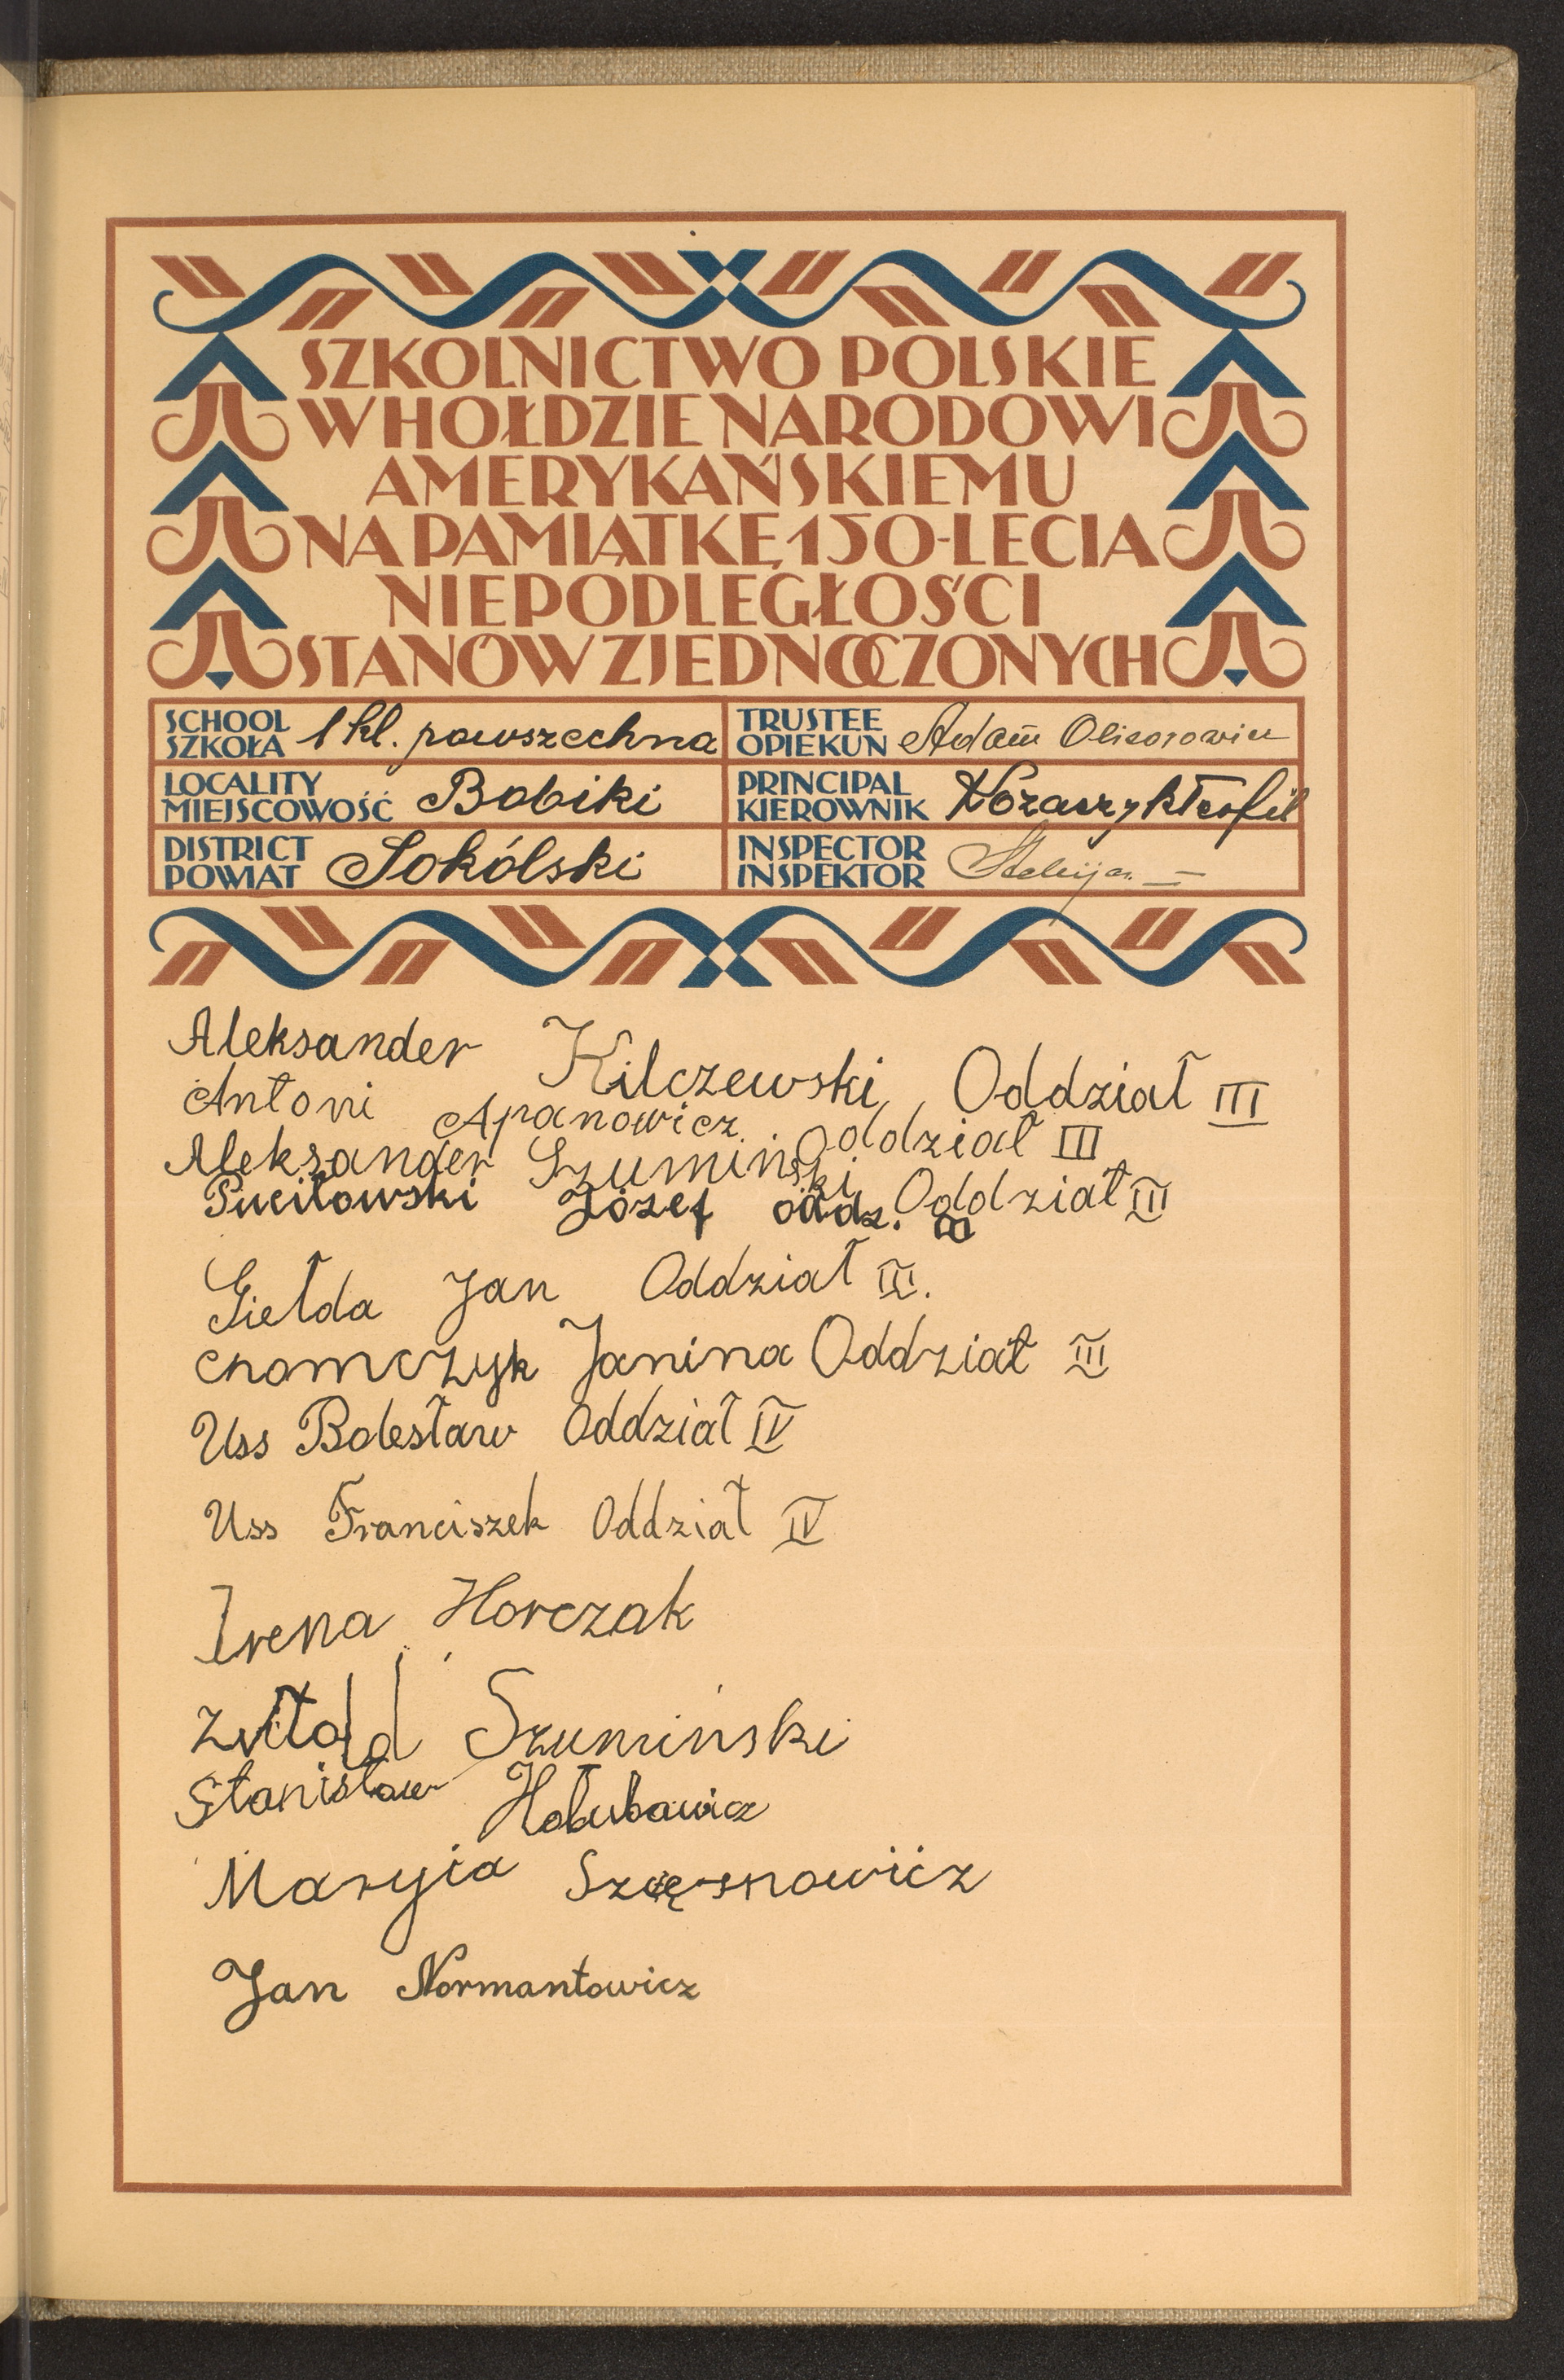 SZKOLNICTWO POLSKIE
W HOŁDZIE NARODOWI
AMERYKAŃSKIEMU
NA PAMIĄTKĘ 150-LECIA
NIEPODLEGŁOŚCI
STANÓW ZJEDNOCZONYCH
SCHOOL SZKOŁA 1 kl. powszechna
TRUSTEE OPIEKUN Adam
LOCALITY MIEJSCOWOŚĆ Bobiki
PRINCIPAL KIEROWNIK Kozaczyk Teofil
DISTRICT POWIAT Sokólski
INSPECTOR INSPEKTOR
Aleksander Kilczewski, Oddział III
Antoni Apanowicz Oddział III
Aleksander Szumiński Oddział III
Puciłowski Józef oddz. III
Giełda Jan Oddział III.
Chomczyk Janina Oddział III
Uss Bolesław Oddział IV
Uss Franciszek Oddział IV
Irena Horczak
Witold Szumiński
Stanisław Hołubowicz
Maryia Szczęsnowicz
Jan Normantowicz